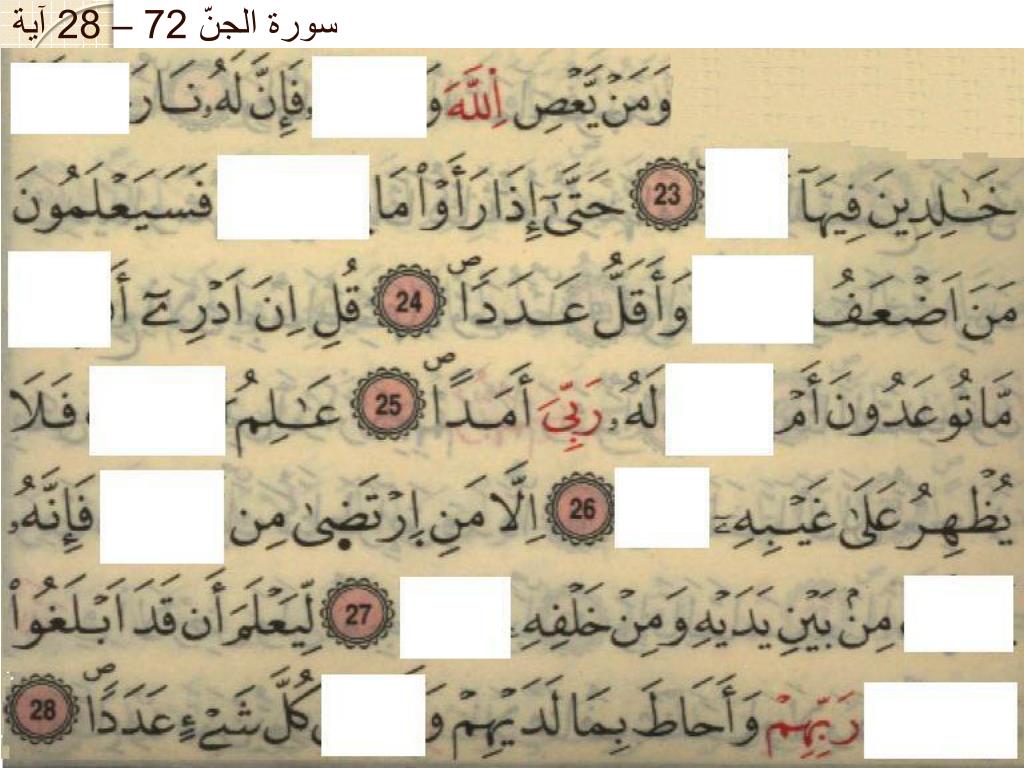 سورة الجنّ 72 – 28 آية
وَمَنْ يَّعْصِ اِللَّهَ وَ فَإِنَّ لَهُۥ نَارَ
خَٰلِدِينَ فِيهَآ 23 حَتَّىٰٓ إِذَا رَأَوْا۟ مَا فَسَيَعْلَمُونَ
مَنَ اَضْعَفُ وَأَقَلُّ عَدَدًاۖ 24 قُلِ اِنَ اَدْرِےٓ
مَّا تُوعَدُونَ أَمْ لَهُۥ رَبِّىَ أَمَدًاۖ 25 عَٰلِمُ فَلَا
يُظْهِرُ عَلَىٰ غَيْبِهِۦٓ 26 اِلَّا مَنِ اِرْتَضىٰ مِن فَإِنَّهُۥ
مِنۢ بَيْنِ يَدَيْهِ وَمِنْ خَلْفِهِۦ 27 لِّيَعْلَمَ أَن قَدَ اَبْلَغُوا۟
رَبِّهِمْ وَأَحَاطَ بِمَا لَدَيْهِمْ وَ كُلَّ شَےْءٍ عَدَدًاۖ 28